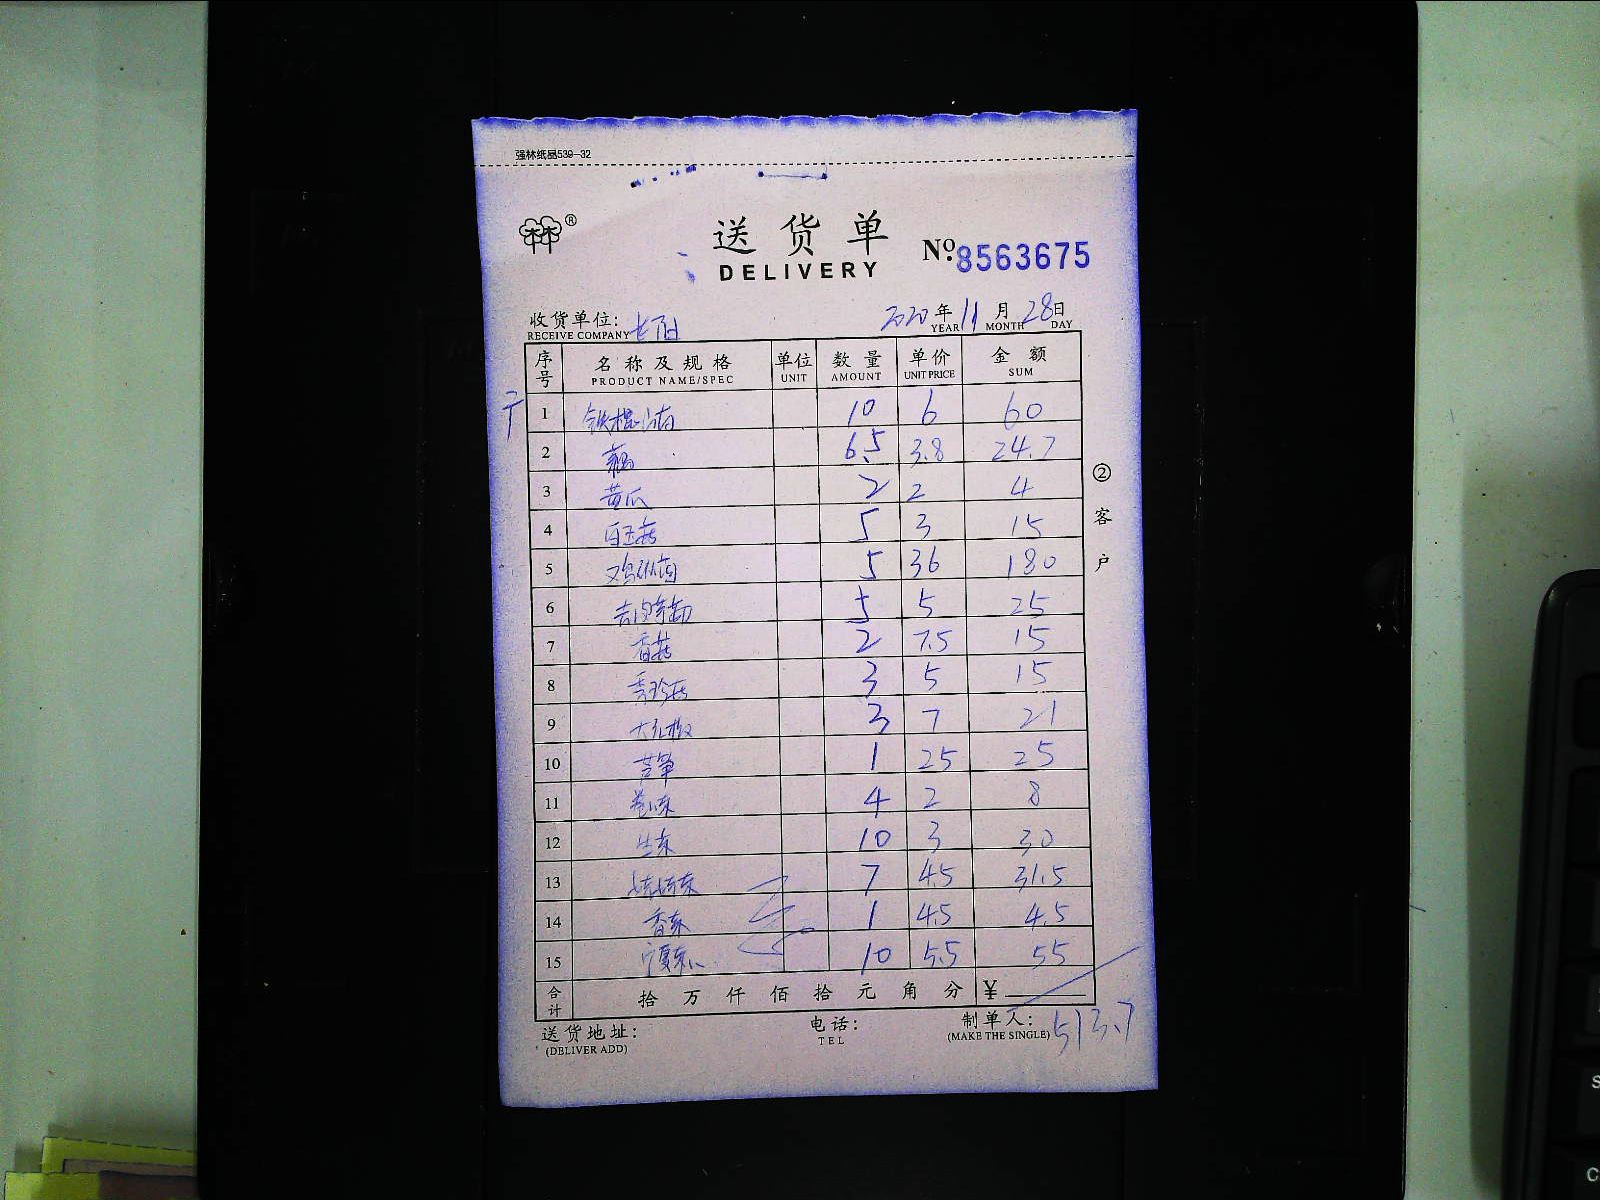 强林纸品539-32
®
送货单
DELIVERY
№:8563675
收货单位: 2020年11月28日
RECEIVE COMPANY YEAR MONTH DAY
序号 名称及规格 单位 数量 单价 金额
PRODUCT NAME/SPEC UNIT AMOUNT UNIT PRICE SUM
1 铁棍山药 10 6 60
2 6.5 3.8 24.7
3 黄瓜 2 2 4
4 白玉菇 5 3 15
5 鸡枞菌 5 36 180
6 5 5 25
7 香菇 2 7.5 15
8 秀珍菇 3 5 15
9 大红椒 3 7 21
10 芦笋 1 25 25
11 4 2 8
12 生菜 10 3 30
13 7 4.5 31.5
14 香菜 1 4.5 4.5
15 10 5.5 55
合计 拾 万 仟 佰 拾 元 角 分 ¥
送货地址: 电话: 制单人: 513.7
(DELIVER ADD) TEL (MAKE THE SINGLE)
②客户